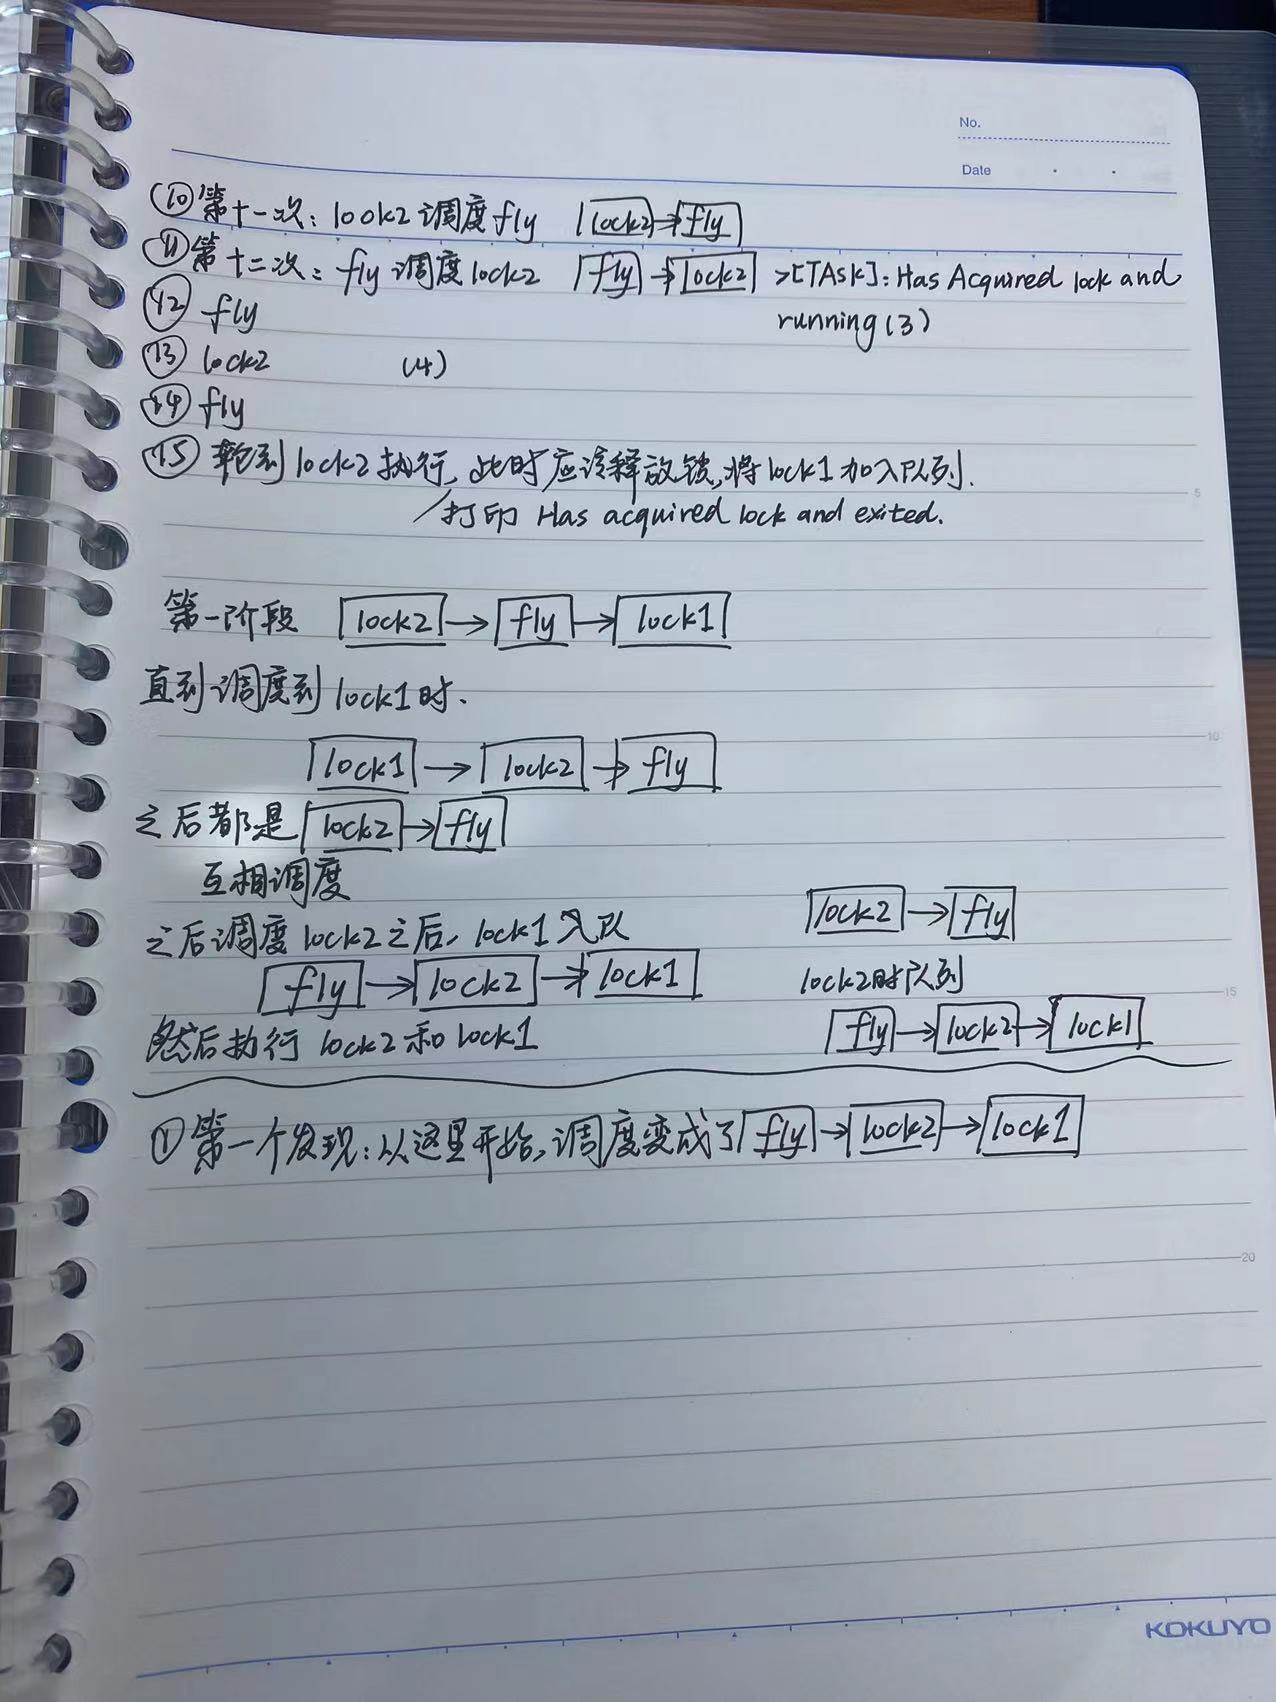 No.
Date
⑩第十一次：look2调度fly |lock2|→|fly|
⑪第十二次：fly调度lock2 |fly|→|lock2| >[TAsk]：Has Acquired lock and
running(3)
⑫ fly
⑬ lock2 (4)
⑭ fly
⑮ 轮到lock2执行,此时应该释放锁,将lock1加入队列.
/打印 Has acquired lock and exited.
5
第一阶段 |lock2|→|fly|→|lock1|
直到调度到lock1时.
10
|lock1|→|lock2|→|fly|
之后都是|lock2|→|fly|
互相调度
之后调度lock2之后,lock1入队 |lock2|→|fly|
|fly|→|lock2|→|lock1| lock2时队列
15
然后执行lock2和lock1 |fly|→|lock2|→|lock1|
①第一个发现：从这里开始,调度变成了|fly|→|lock2|→|lock1|
20
KOKUYO